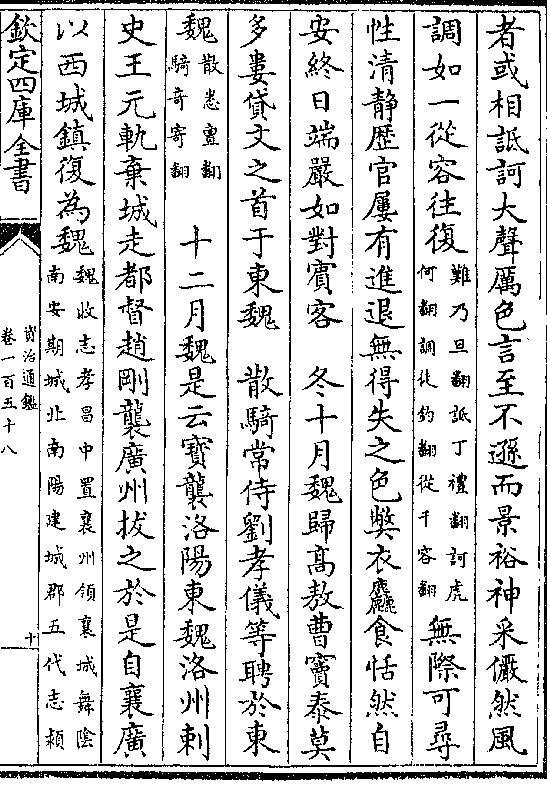 者或相詆訶大聲厲色言至不遜而景裕神采儼然風
調如一從容往復難乃旦翻詆丁禮翻訶虎何翻調徒釣翻從千容翻無際可尋
性清靜歷官屢有進退無得失之色弊衣麤食恬然自
安終日端嚴如對賓客　冬十月魏歸高敖曹竇泰莫
多婁貸文之首于東魏　散騎常侍劉孝儀等聘於東
魏散悉亶翻騎奇寄翻　十二月魏是云寶襲洛陽東魏洛州刺
史王元軌棄城走都督趙剛襲廣州拔之於是自襄廣
以西城鎮復為魏魏收志孝昌中置襄州領襄城舞陰南安期城北南陽建城郡五代志潁
欽定四庫全書
資治通鑑
卷一百五十八
十